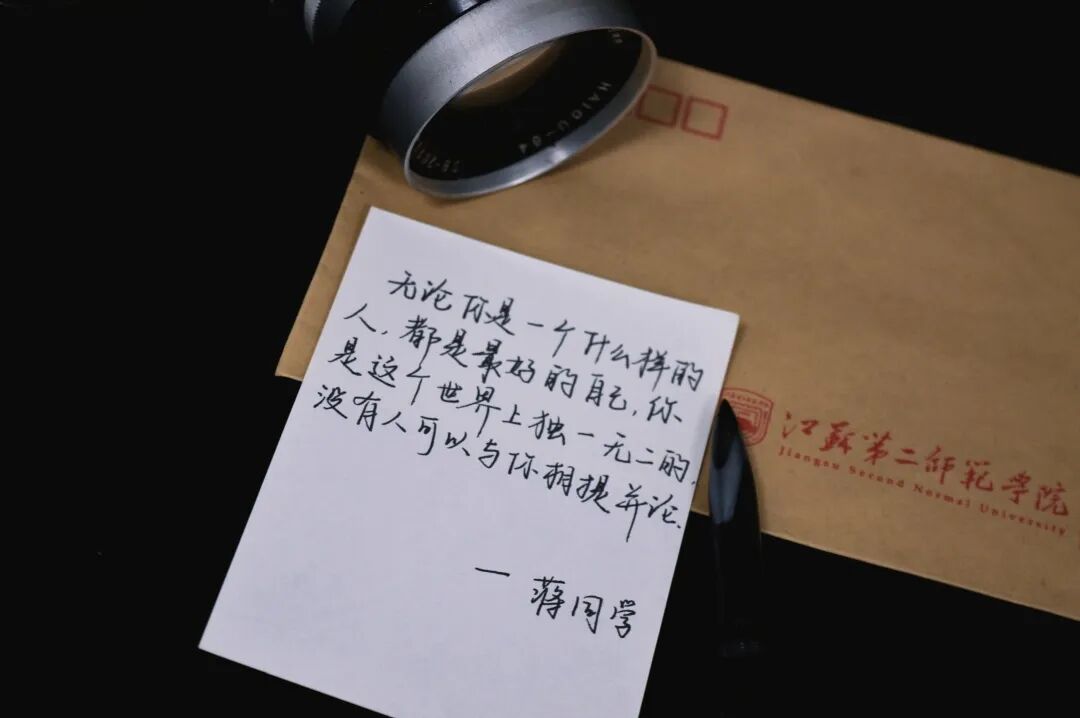 HAIOU-64
无论你是一个什么样的
人,都是最好的自己,你
是这个世界上独一无二的,
没有人可以与你相提并论.
一 蒋同学
江苏第二师范学院
Jiangsu Second Normal University